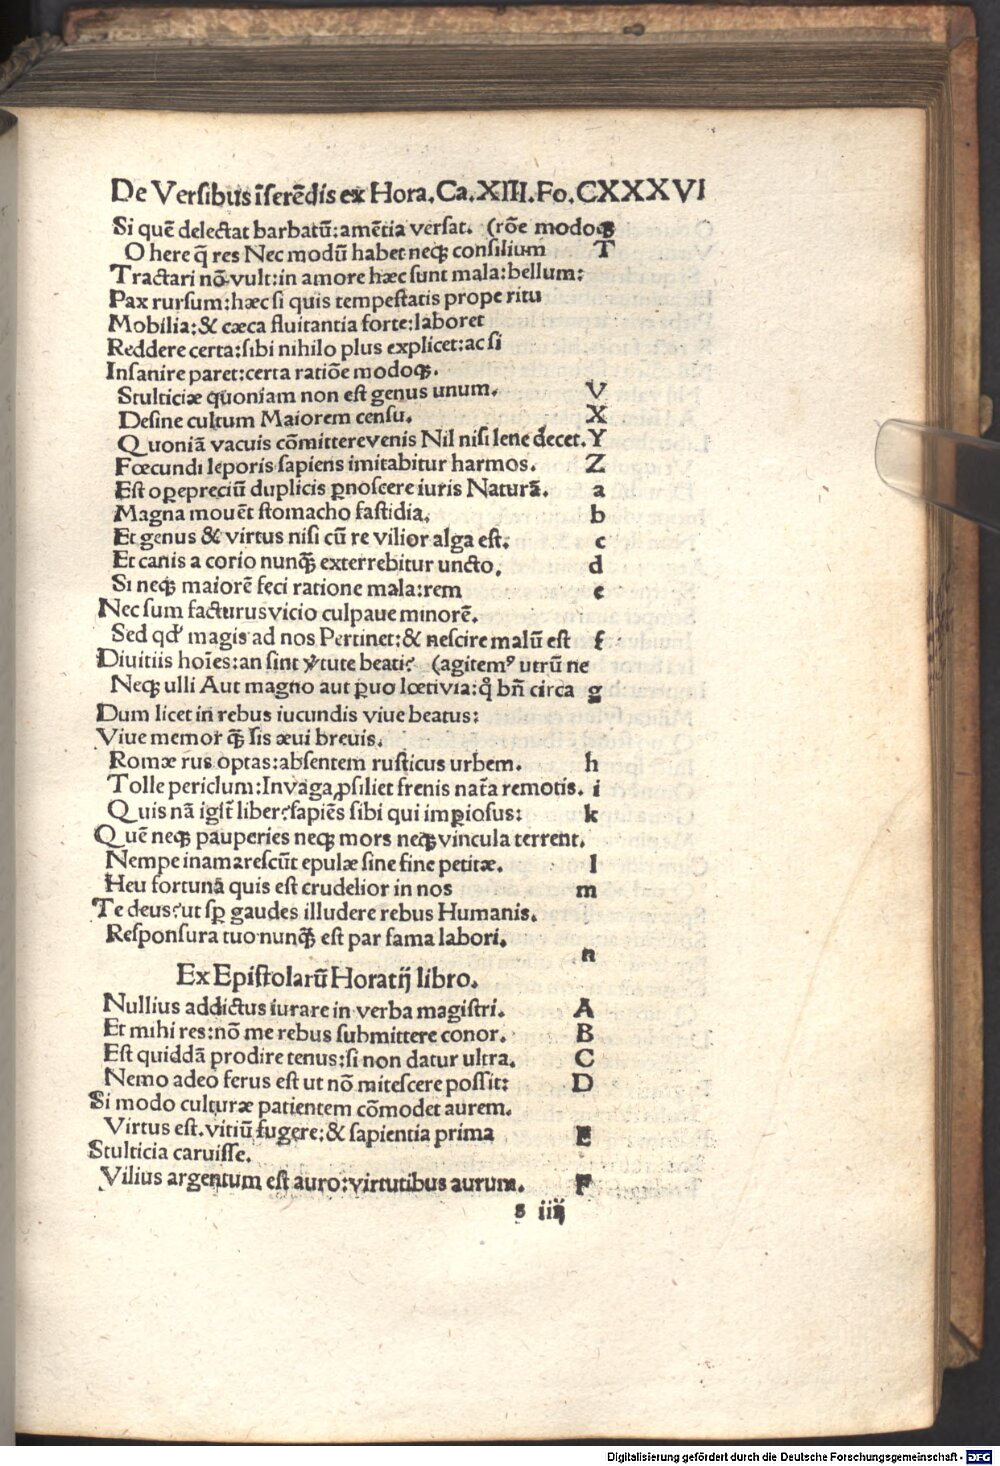 De Versibus īserēdis ex Hora.Ca.XIII.Fo.CXXXVI
Si quē delectat barbatū:amētia versat. (rōe modoq3 S
O here q̄ res Nec modū habet neq3 consilium T
Tractari nō vult:in amore hæc sunt mala:bellum:
Pax rursum:hæc si quis tempestatis prope ritu
Mobilia:& cæca fluitantia forte:laboret
Reddere certa:sibi nihilo plus explicet:ac si
Insanire paret:certa ratiōe modoq3.
Stulticiæ quoniam non est genus unum. V
Desine cultum Maiorem censu. X
Quoniā vacuis cōmitterevenis Nil nisi lene decet. Y
Fœcundi leporis sapiens imitabitur harmos. Z
Est oꝑepreciū duplicis ꝑnoscere iuris Naturā. a
Magna mouēt stomacho fastidia. b
Et genus & virtus nisi cū re vilior alga est. c
Et canis a corio nunq̄3 exterrebitur uncto. d
Si neq3 maiorē feci ratione mala:rem e
Nec sum facturus vicio culpaue minorē.
Sed qd' magis ad nos Pertinet:& nescire malū est f
Diuitiis hoīes:an sint v̓tute beati? (agitemꝰ utrū ne
Neq3 ulli Aut magno aut ꝑuo lœtivia:q̊ bn̄ circa g
Dum licet in rebus iucundis viue beatus:
Viue memor q̄3 sis æui breuis.
Romæ rus optas:absentem rusticus urbem. h
Tolle periclum:Invaga ꝓsiliet frenis nat̄a remotis. i
Quis nā igit̄ liber?sapiēs sibi qui imꝑiosus: k
Quē neq3 pauperies neq3 mors neq3 vincula terrent.
Nempe inamarescūt epulæ sine fine petitæ. l
Heu fortunā quis est crudelior in nos m
Te deus?ut sꝑ gaudes illudere rebus Humanis.
Responsura tuo nunq̄3 est par fama labori.
n
Ex Epistolarū Horatij libro.
Nullius addictus iurare in verba magistri. A
Et mihi res:nō me rebus submittere conor. B
Est quiddā prodire tenus:si non datur ultra. C
Nemo adeo ferus est ut nō mitescere possit: D
Si modo culturæ patientem cōmodet aurem.
Virtus est.vitiū fugere:& sapientia prima E
Stulticia caruisse.
Vilius argentum est auro:virtutibus aurum. F
s iiij
Digitalisierung gefördert durch die Deutsche Forschungsgemeinschaft - DFG